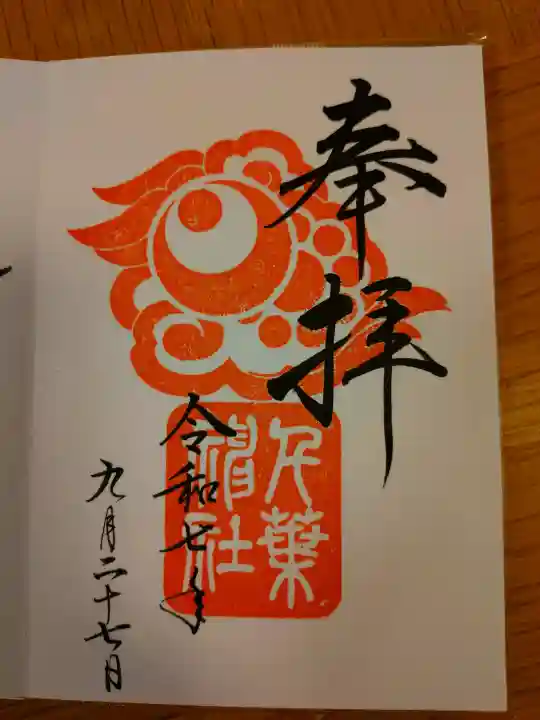 奉拝
千葉
神社
令和七年
九月二十七日